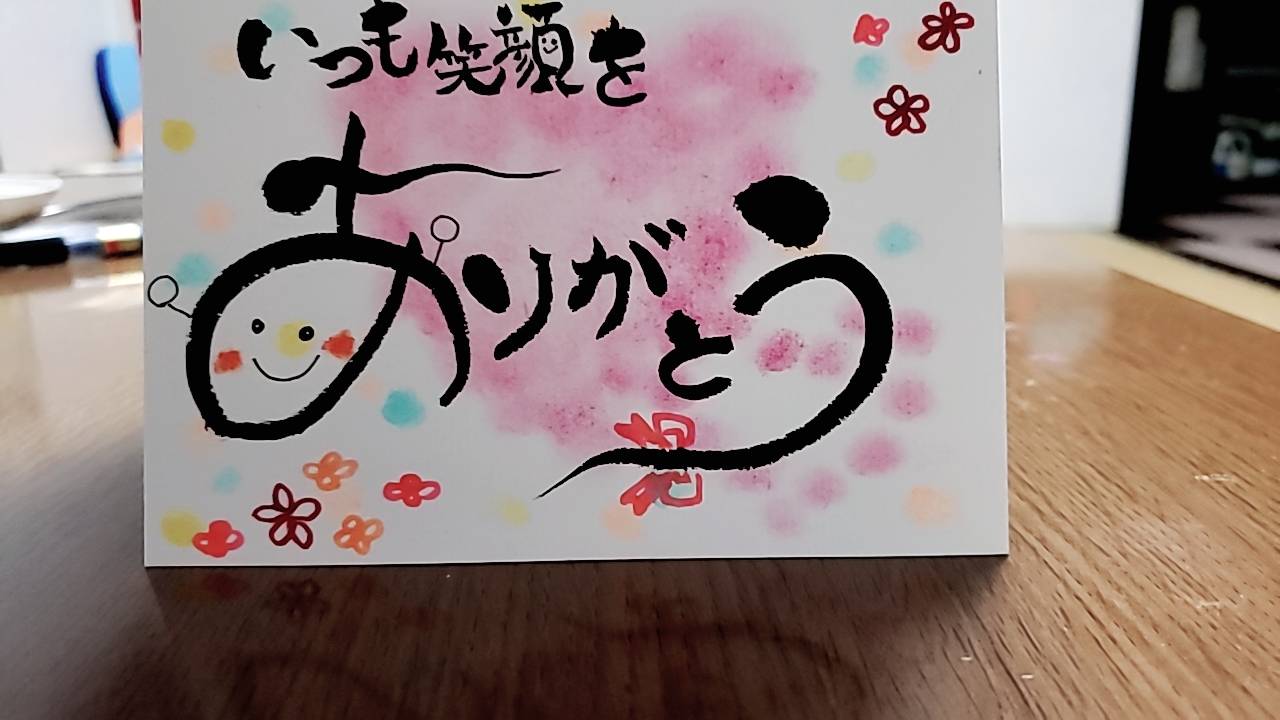 いつも笑顔を
ありがとう